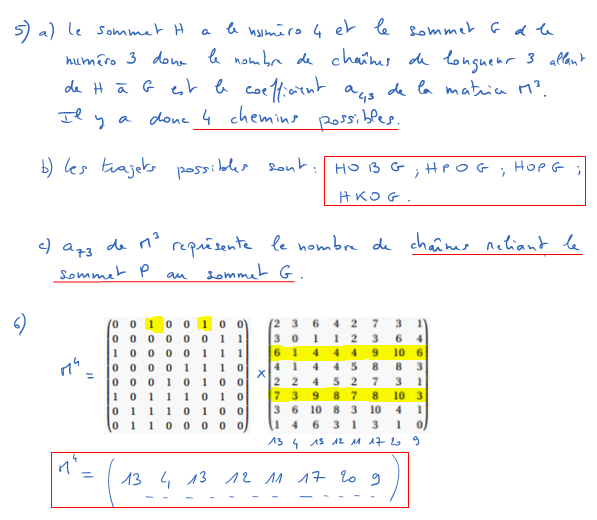 5) a) Le sommet H a le numéro 4 et le sommet G a le
numéro 3 donc le nombre de chaînes de longueur 3 allant
de H à G est le coefficient a₄₃ de la matrice M³.
Il y a donc 4 chemins possibles.
b) Les trajets possibles sont : HOBG ; HPOG ; HOPG ;
HKOG.
c) a₇₃ de M³ représente le nombre de chaînes reliant le
sommet P au sommet G.
6)
M⁴ =
(0 0 1 0 0 1 0 0)
(0 0 0 0 0 0 1 1)
(1 0 0 0 0 1 1 1)
(0 0 0 0 1 1 1 0)
(0 0 0 1 0 1 0 0)
(1 0 1 1 1 0 1 0)
(0 1 1 1 0 1 0 0)
(0 1 1 0 0 0 0 0)
×
(2 3 6 4 2 7 3 1)
(3 0 1 1 2 3 6 4)
(6 1 4 4 4 9 10 6)
(4 1 4 4 5 8 8 3)
(2 2 4 5 2 7 3 1)
(7 3 9 8 7 8 10 3)
(3 6 10 8 3 10 4 1)
(1 4 6 3 1 3 1 0)
13 4 13 12 11 17 20 9
M⁴ = (13 4 13 12 11 17 20 9)